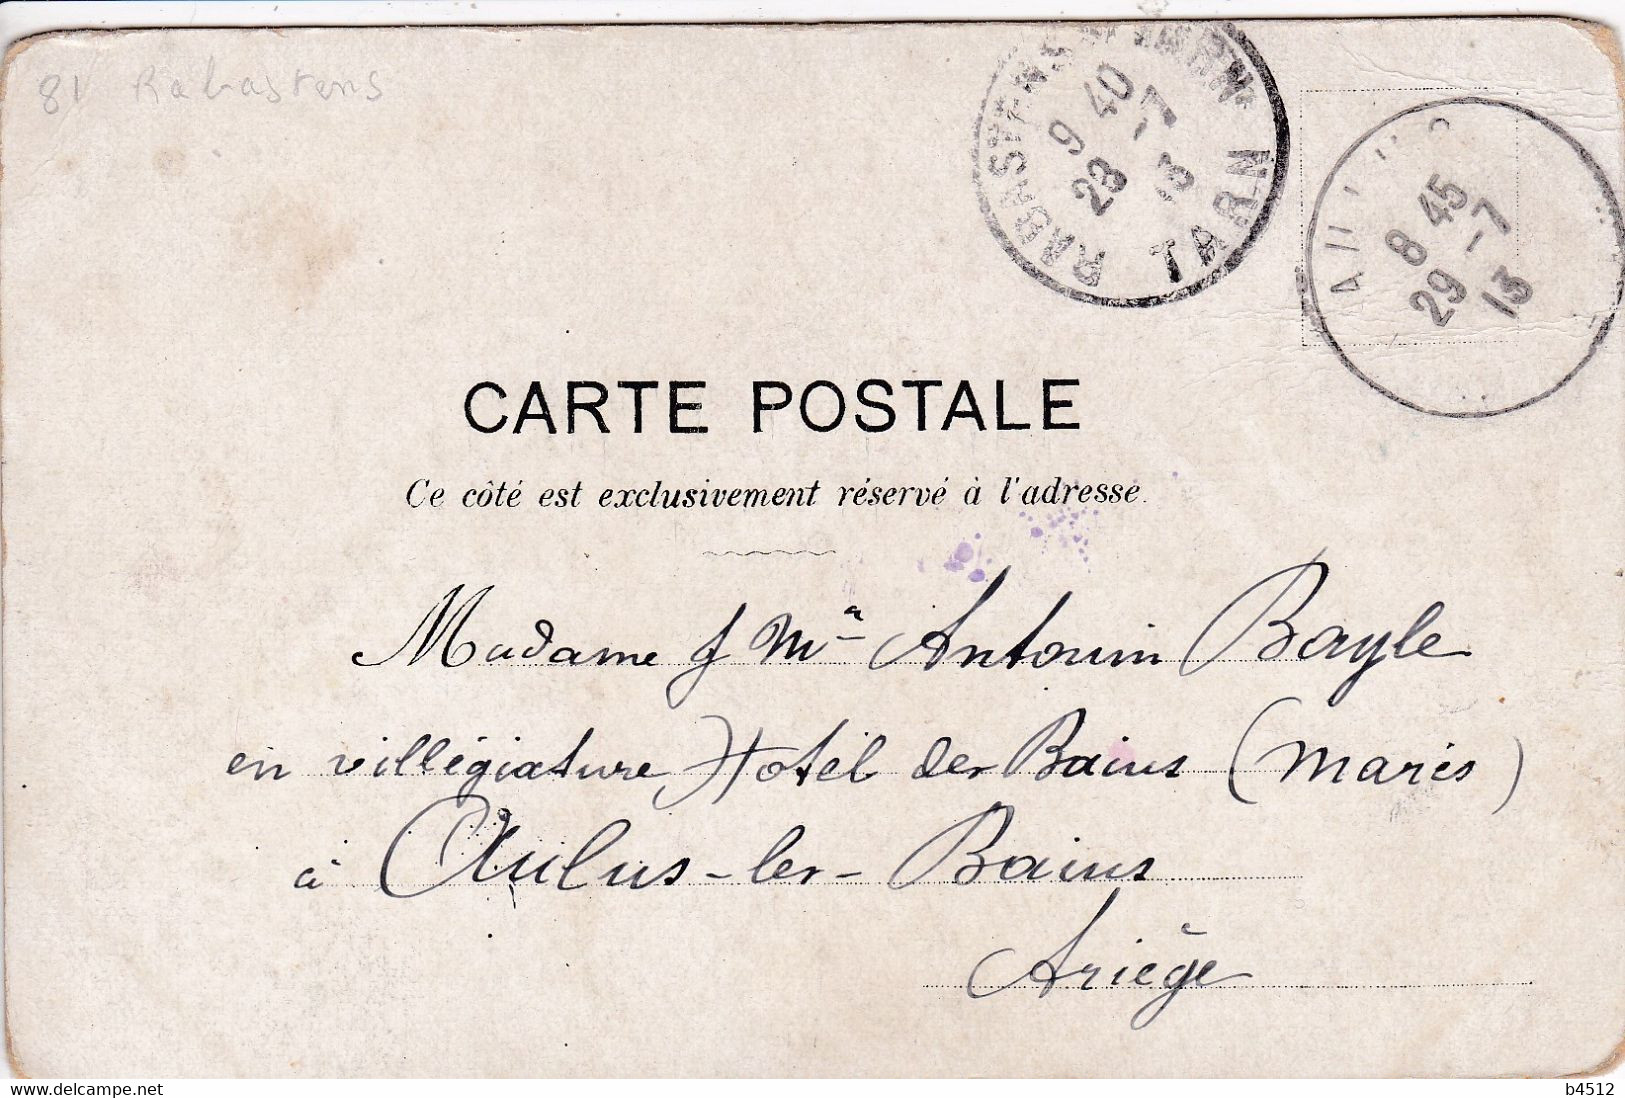 81 Rabastens
RABASTENS-TARN TARN
9 40
23 -7
13
8 45
29 -7
13
CARTE POSTALE
Ce côté est exclusivement réservé à l'adresse.
Madame & Mr Antonin Bayle
en villégiature Hotel des Bains (Maris)
à Aulus-les-Bains
Ariège
www.delcampe.net
b4512